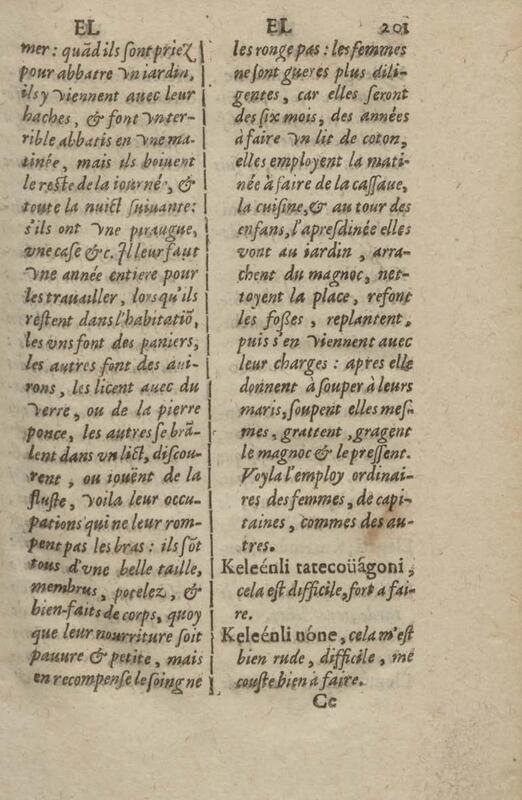 EL
EL 201
mer : quãd ils ſont priez
pour abbatre vn iardin,
ils y viennent auec leur
haches, & font vn ter-
rible abbatis en vne ma-
tinée, mais ils boiuent
le reſte de la iourné, &
toute la nuict ſuiuante:
s'ils ont vne piraugue,
vne caſe &c. Il leur faut
vne année entiere pour
les trauailler, lors qu'ils
reſtent dans l'habitatiõ,
les vns font des paniers,
les autres font des aui-
rons, les licent auec du
verre, ou de la pierre
ponce, les autres ſe brã-
lent dans vn lict, diſcou-
rent, ou ioüent de la
fluſte, voila leur occu-
pations qui ne leur rom-
pent pas les bras : ils sõt
tous d'vne belle taille,
membrus, potelez, &
bien-faits de corps, quoy
que leur nourriture ſoit
pauure & petite, mais
en recompenſe le ſoing ne
les ronge pas : les femmes
ne ſont gueres plus dili-
gentes, car elles ſeront
des ſix mois, des années
à faire vn lit de coton,
elles employent la mati-
née à faire de la caſſaue,
la cuiſine, & au tour des
enfans, l'apresdinée elles
vont au iardin, arra-
chent du magnoc, net-
toyent la place, refont
les foßes, replantent,
puis s'en viennent auec
leur charges : apres elle
donnent à ſouper à leurs
maris, ſoupent elles meſ-
mes, grattent, gragent
le magnoc & le preſſent.
Voyla l'employ ordinai-
res des femmes, de capi-
taines, commes des au-
tres.
Keleénli tatecoüágoni,
cela eſt difficile, fort a fai-
re.
Keleénli nóne, cela m'eſt
bien rude, difficile, me
couſte bien à faire.
Cc